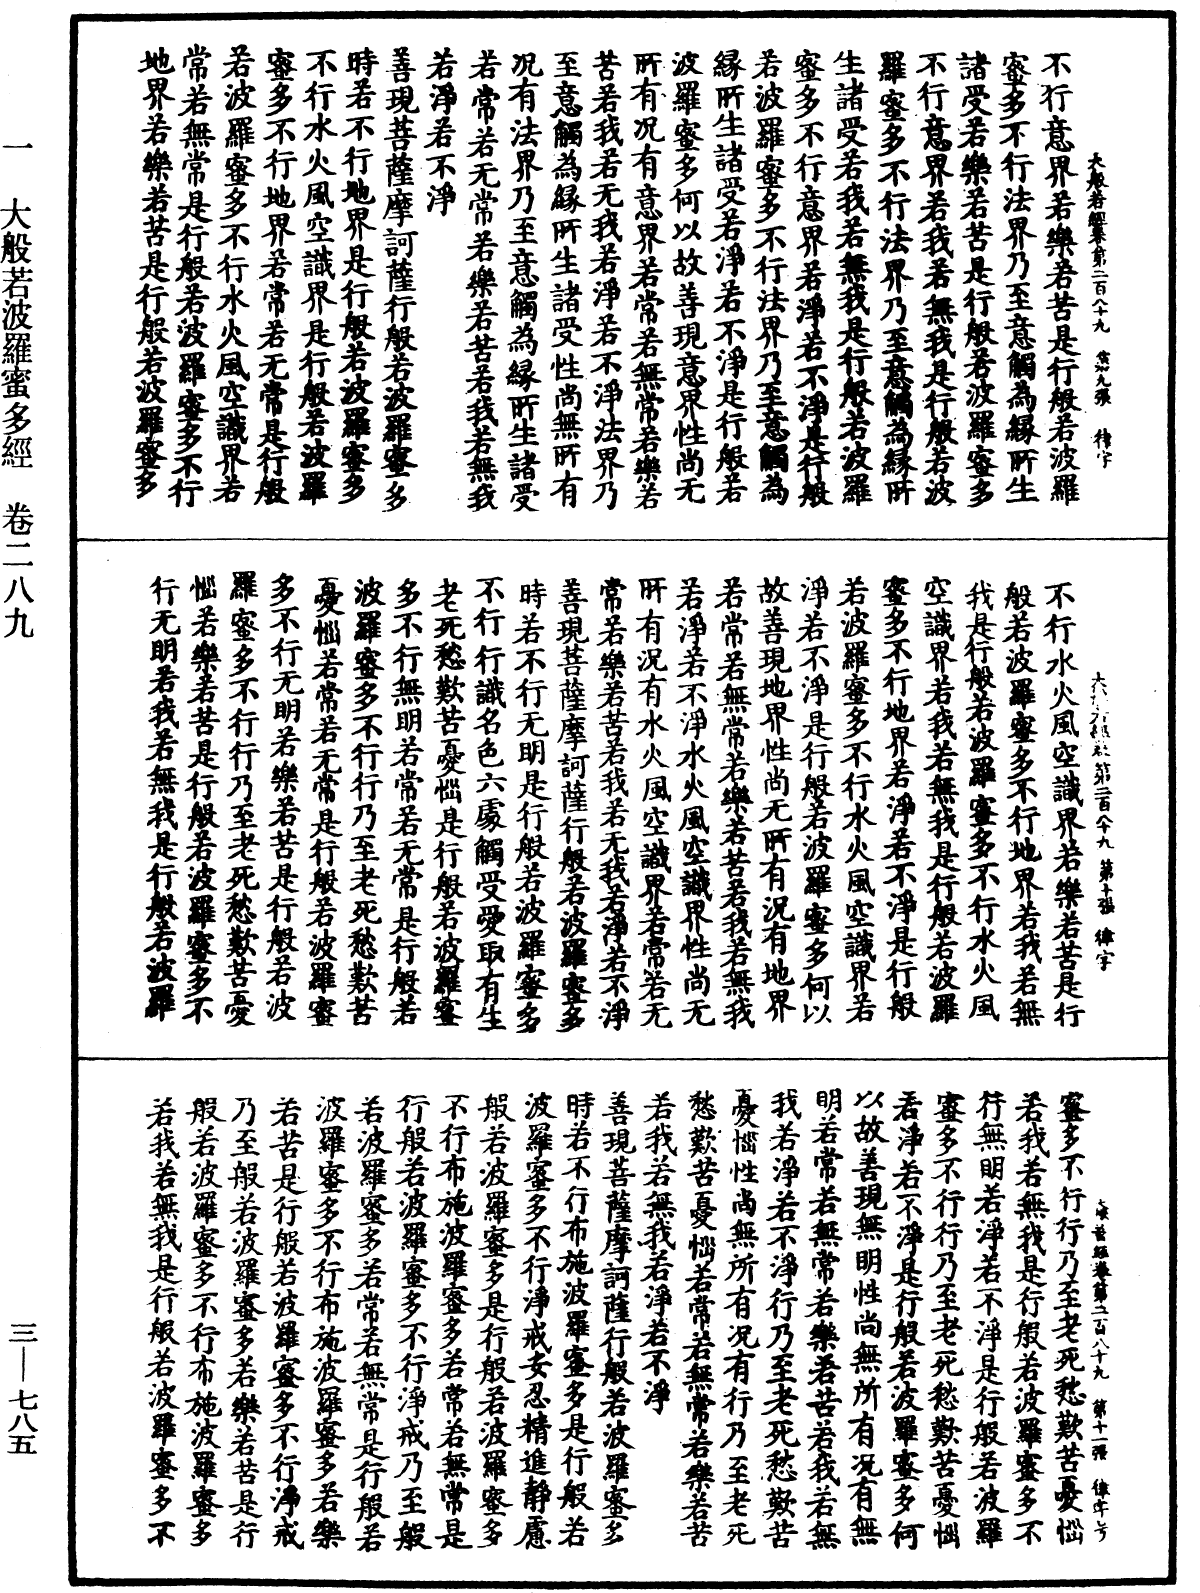 不行意界若樂若苦是行般若波羅
蜜多不行法界乃至意觸為緣所生
諸受若樂若苦是行般若波羅蜜多
不行意界若我若無我是行般若波
羅蜜多不行法界乃至意觸為緣所
生諸受若我若無我是行般若波羅
蜜多不行意界若淨若不淨是行般
若波羅蜜多不行法界乃至意觸為
緣所生諸受若淨若不淨是行般若
波羅蜜多何以故善現意界性尚无
所有况有意界若常若無常若樂若
苦若我若无我若淨若不淨法界乃
至意觸為緣所生諸受性尚無所有
况有法界乃至意觸為緣所生諸受
若常若无常若樂若苦若我若無我
若淨若不淨
善現菩薩摩訶薩行般若波羅蜜多
時若不行地界是行般若波羅蜜多
不行水火風空識界是行般若波羅
蜜多不行地界若常若无常是行般
若波羅蜜多不行水火風空識界若
常若無常是行般若波羅蜜多不行
地界若樂若苦是行般若波羅蜜多
大般若經卷第二百八十九 第九張 律字
不行水火風空識界若樂若苦是行
般若波羅蜜多不行地界若我若無
我是行般若波羅蜜多不行水火風
空識界若我若無我是行般若波羅
蜜多不行地界若淨若不淨是行般
若波羅蜜多不行水火風空識界若
淨若不淨是行般若波羅蜜多何以
故善現地界性尚无所有况有地界
若常若無常若樂若苦若我若無我
若淨若不淨水火風空識界性尚无
所有况有水火風空識界若常若无
常若樂若苦若我若无我若淨若不淨
善現菩薩摩訶薩行般若波羅蜜多
時若不行无明是行般若波羅蜜多
不行行識名色六處觸受愛取有生
老死愁歎苦憂惱是行般若波羅蜜
多不行無明若常若无常是行般若
波羅蜜多不行行乃至老死愁歎苦
憂惱若常若无常是行般若波羅蜜
多不行无明若樂若苦是行般若波
羅蜜多不行行乃至老死愁歎苦憂
惱若樂若苦是行般若波羅蜜多不
行无明若我若無我是行般若波羅
第二百八十九 第十張 律字
蜜多不行行乃至老死愁歎苦憂惱
若我若無我是行般若波羅蜜多不
行無明若淨若不淨是行般若波羅
蜜多不行行乃至老死愁歎苦憂惱
若淨若不淨是行般若波羅蜜多何
以故善現無明性尚無所有况有無
明若常若無常若樂若苦若我若無
我若淨若不淨行乃至老死愁歎苦
憂惱性尚無所有况有行乃至老死
愁歎苦憂惱若常若無常若樂若苦
若我若無我若淨若不淨
善現菩薩摩訶薩行般若波羅蜜多
時若不行布施波羅蜜多是行般若
波羅蜜多不行淨戒安忍精進靜慮
般若波羅蜜多是行般若波羅蜜多
不行布施波羅蜜多若常若無常是
行般若波羅蜜多不行淨戒乃至般
若波羅蜜多若常若無常是行般若
波羅蜜多不行布施波羅蜜多若樂
若苦是行般若波羅蜜多不行淨戒
乃至般若波羅蜜多若樂若苦是行
般若波羅蜜多不行布施波羅蜜多
若我若無我是行般若波羅蜜多不
大般若經卷第二百八十九 第十一張 律字号
一 大般若波羅蜜多經 卷二八九
三—七八五